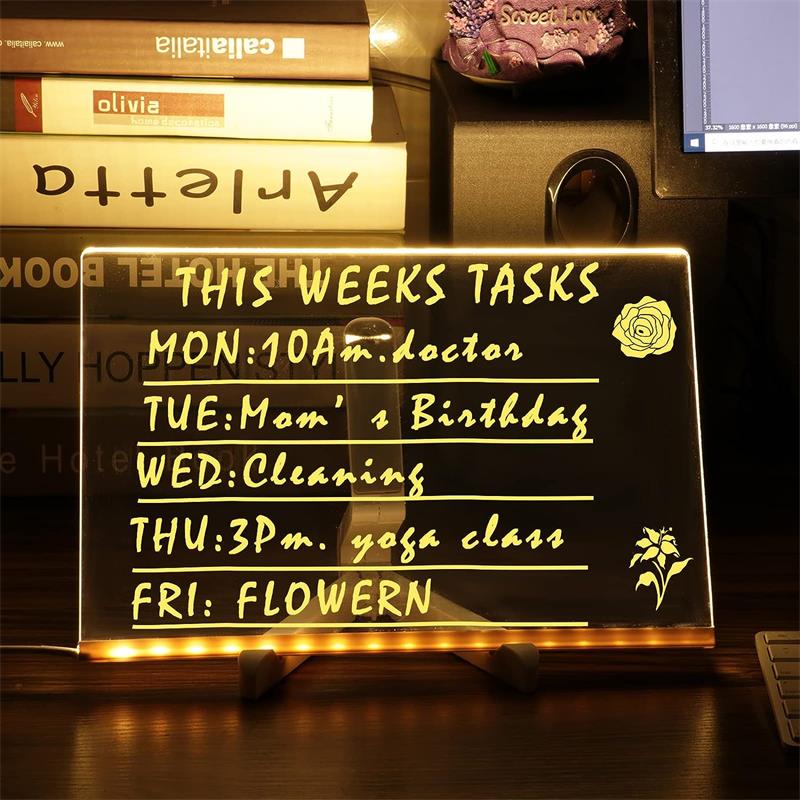 caliaitalia
www.caliaitalia
olivia
home decoration
Arletta
THE HOTEL BOOK
Sweet Love
THIS WEEKS TASKS
MON:10Am.doctor
TUE:Mom's Birthday
WED:Cleaning
THU:3Pm. yoga class
FRI: FLOWERN